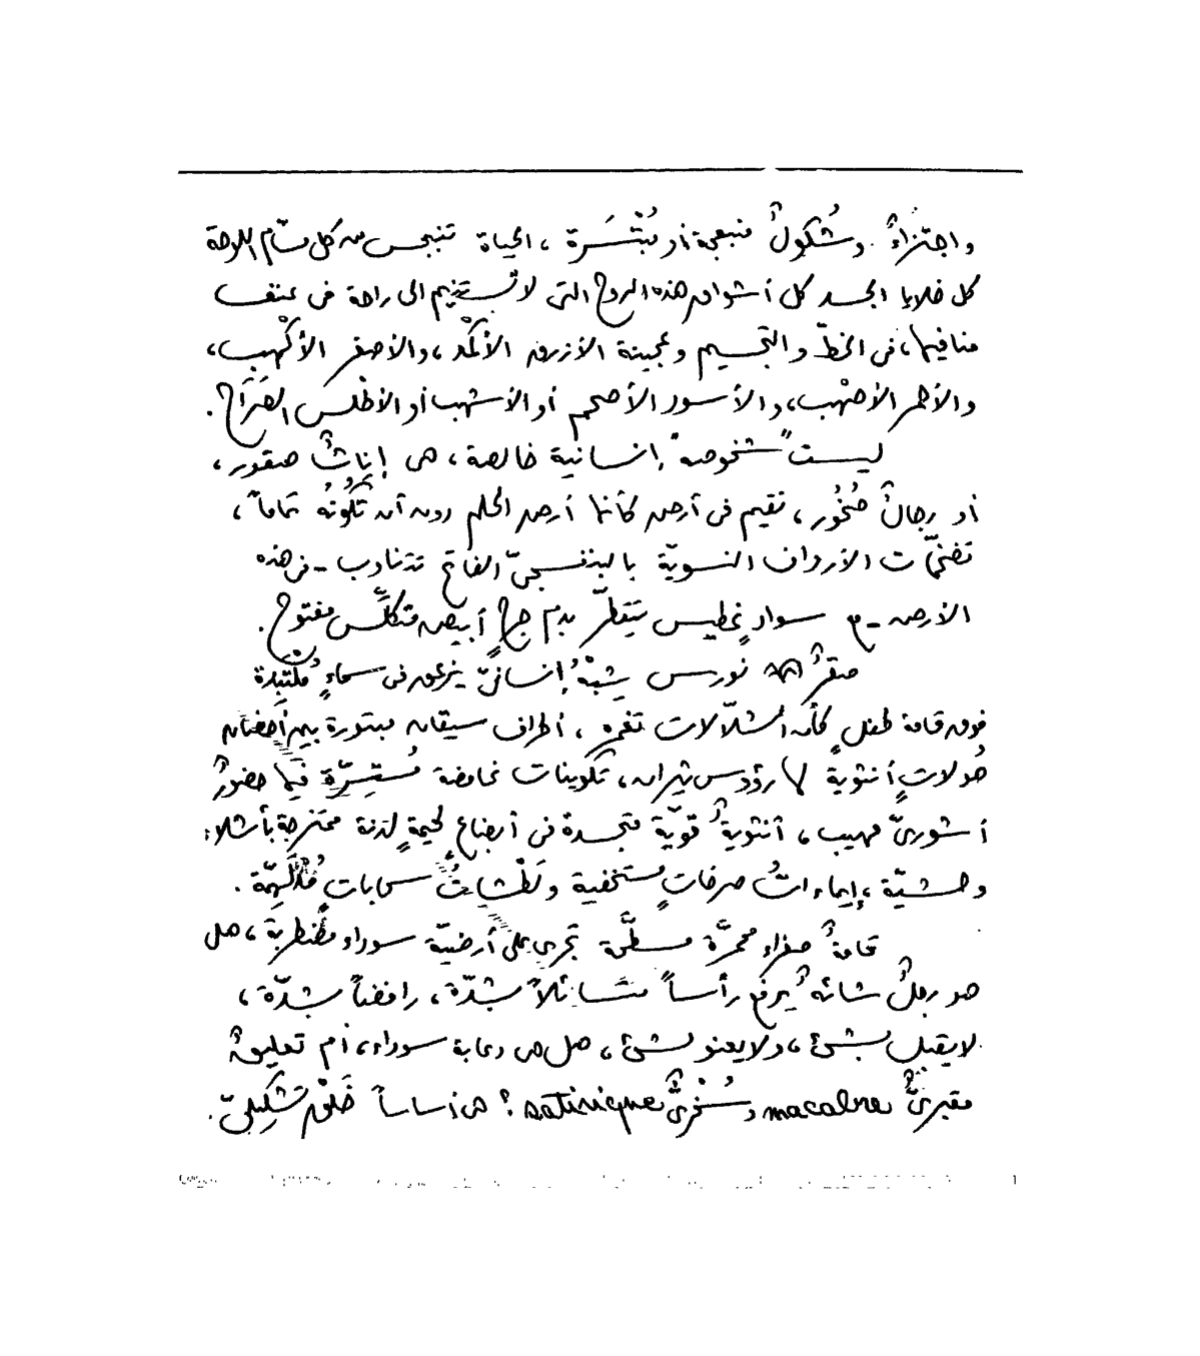 واجتزاءٌ. وشُكولٌ منبعجة أو مُبْتَسَرة، الحياة تنبجس من كل مسّام اللوحة
كل خلايا الجسد كل أشواق هذه الروح التى لا تستنيم الى راحة فى عنف
منافيها، فى الخطّ والتجسيم وعجينة الأزرق الأكْمد، والأصفر الأكْهب،
والأحمر الأصْهب، والأسود الأصحم أو الأشهب أو الأطْلس القَرَاح.
ليست "شخوصه" إنسانية خالصة، هى إناثُ صقور،
أو رجالُ صُخُور، تقيم فى أرض كأنها أرض الحلم دون أن تكُونُه تماماً،
تضخّمات الأرداف النسويّة بالبنفسجىّ الفاتح تتناوب - فى هذه
الأرض - مع سوادٍ غطيس يَتَقطّر بدم جرحٍ أبيض متكلِّس مفتوح.
صقرٌ نورس شِبْهُ إنسانىّ يزعق فى سماءٍ مُلتبدة
فوق قامة طفلٍ كأن الشلّالات تغمره، أطراف سيقان مبتورة بين أحضان
حُولاتٍ أنثوية لها رؤوس ثيران، تكوينات غامضة مُستسِرّة فيها حضورٌ
أشورىّ مهيب، أنثويةٌ قويّة متجسدة فى أبضاعٍ لحيمةٍ لدنة ممتزجة بأشلاء
وحشيّة، إيماءاتُ صرخاتٍ مستخفية ولَطْشاتُ سحاباتٍ مُدْلَهِمّة.
قامةٌ صفراء محمرّة مسطَّحة تجرى على أرضيّة سوداء مضطربة، هل
هو رجلٌ شائهٌ يرفع رأساً متسائلاً بشدّة، رافضاً بشدّة،
لا يقبل بشئ، ولا يعنو لشئ، هل هى دعابة سوداء، أم تعليقٌ
مقبرىٌّ macabre وسُخْرىٌّ satirique؟ هى أساساً خَلْق تشكيلىّ.